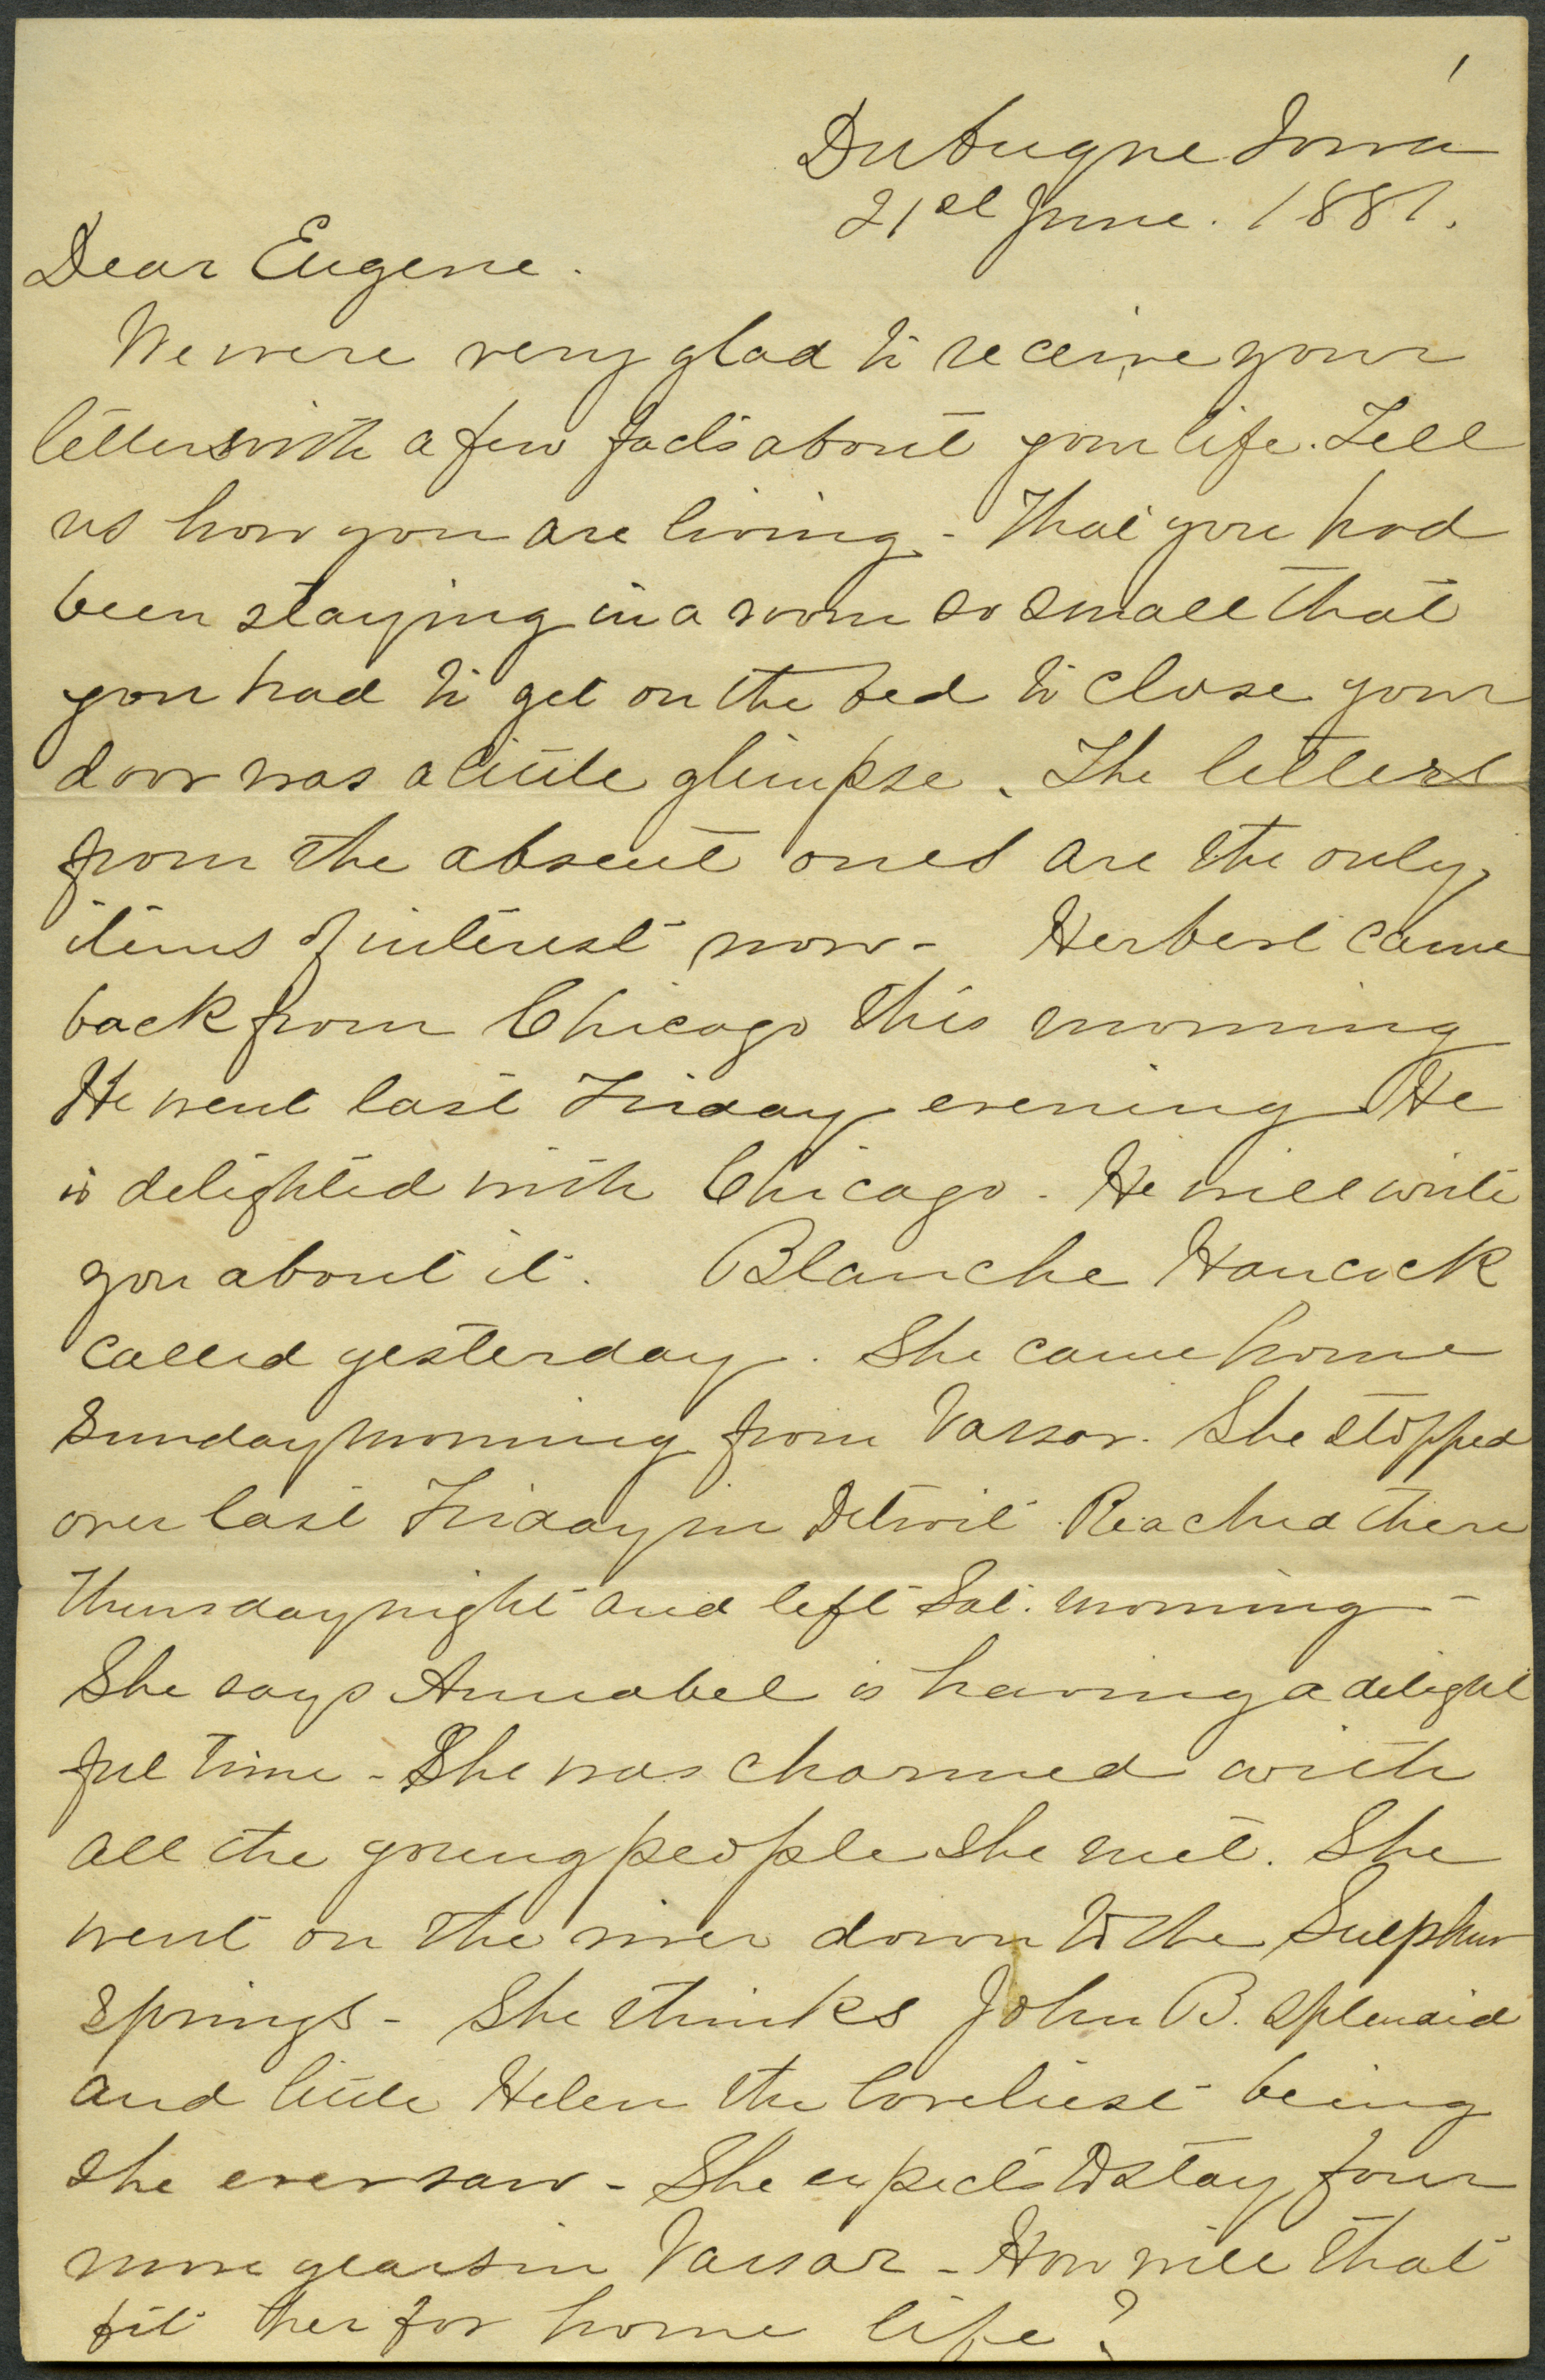 1
Dubuque Iowa
21st June. 1881.
Dear Eugene.
We were very glad to receive your
letter with a few facts about your life. Tell
us how you are living - That you had
been staying in a room so small that
you had to get on the bed to close your
door was a little glimpse. The letters
from the absent ones are the only
items of interest now - Herbert came
back from Chicago this morning
He went last Friday evening He
is delighted with Chicago. He will write
you about it. Blanche Hancock
called yesterday. She came home
Sunday morning from Vassar. She stopped
over last Friday in Detroit. Reached there
Thursday night and left Sat. morning -
She says Annabel is having a delight
ful time - She was charmed with
all the young people she met. She
went on the river down to the Sulphur
Springs - She thinks John B. splendid
and little Helen the loveliest being
she ever saw - She expects to stay four
more years in Vassar - How will that
fit her for home life?